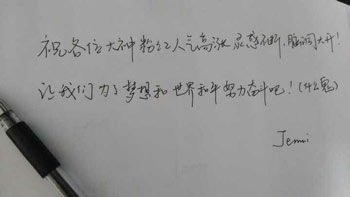 祝各位大神粉红人气高涨灵感不断，脑洞大开！
让我们为了梦想和世界和平努力奋斗吧！(什么鬼)
Jenni